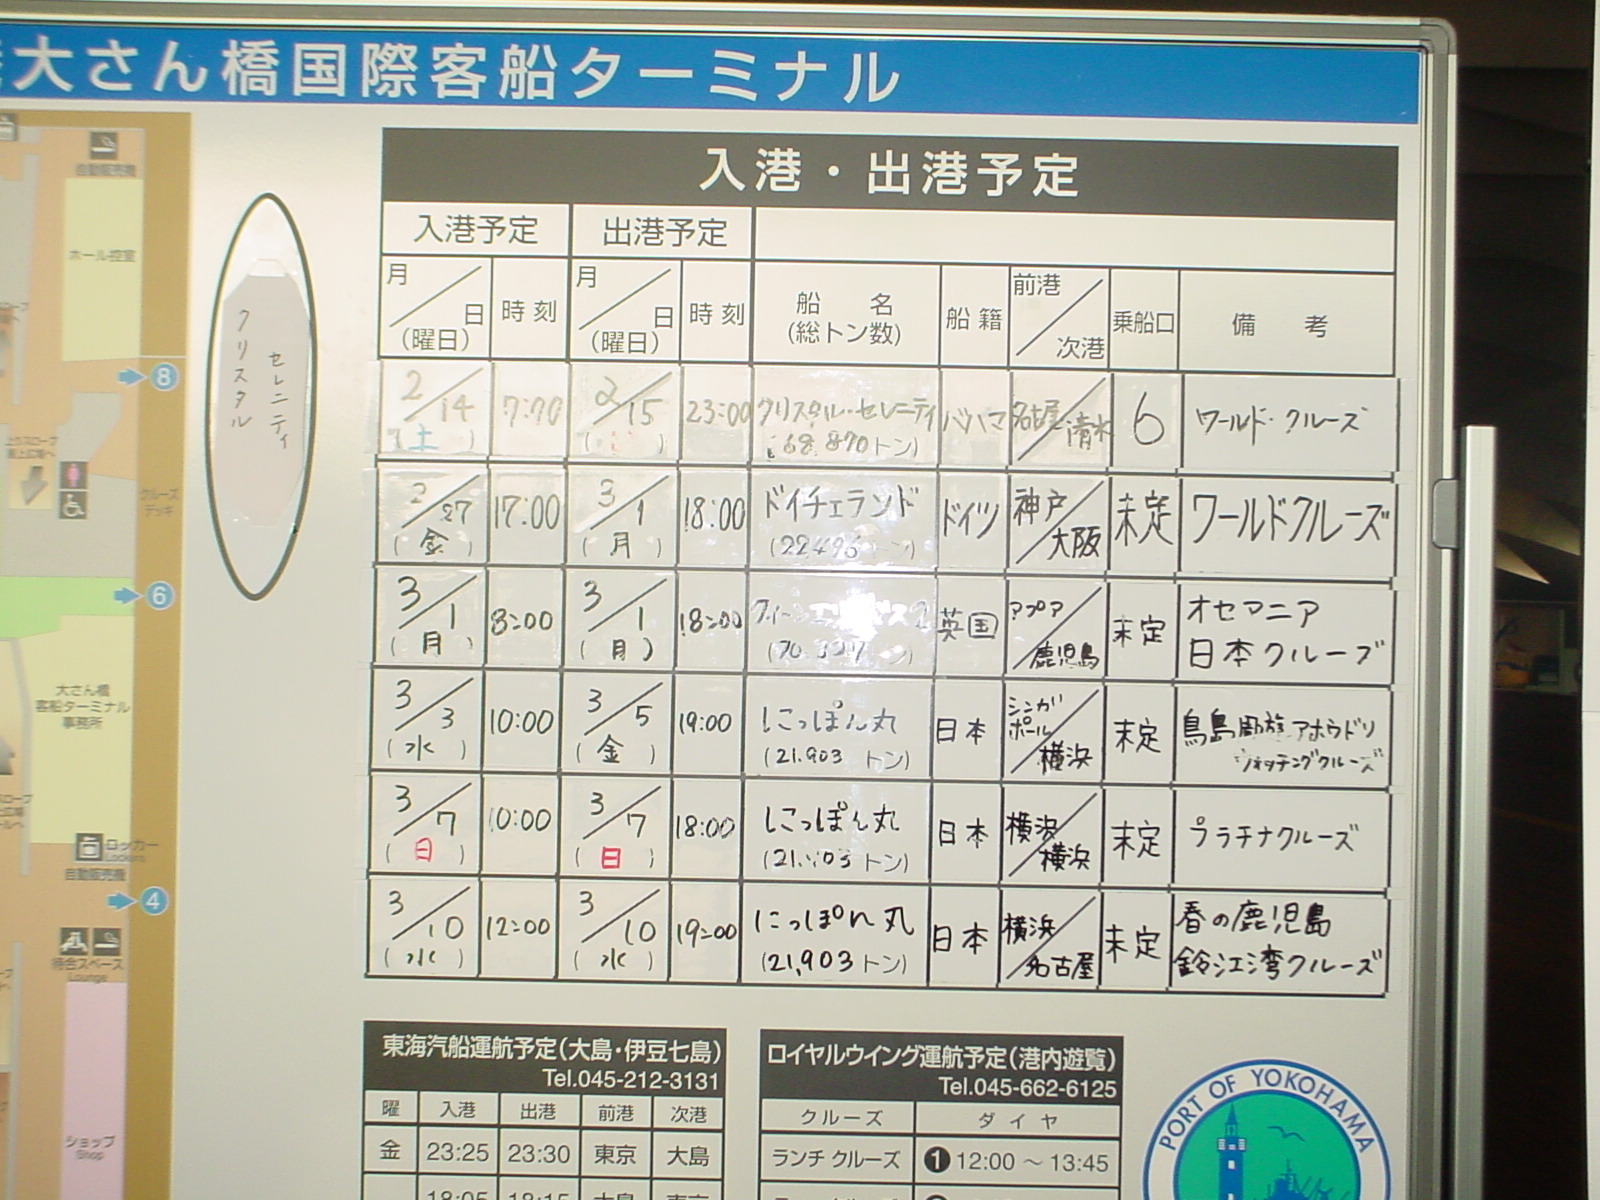 大さん橋国際客船ターミナル
入港・出港予定
入港予定 出港予定
月／日(曜日) 時刻 月／日(曜日) 時刻 船名(総トン数) 船籍 前港／次港 乗船口 備考
2／14(土) 2／15 23:00 クリスタル・セレニティ(68,870トン) バハマ 名古屋／清水 6 ワールド・クルーズ
2／27(金) 17:00 3／1(月) 18:00 ドイチェランド(22496トン) ドイツ 神戸／大阪 未定 ワールドクルーズ
3／1(月) 8:00 3／1(月) 18:00 英国 ／鹿児島 未定 オセアニア日本クルーズ
3／3(水) 10:00 3／5(金) 19:00 にっぽん丸(21,903トン) 日本 シンガポール／横浜 未定 鳥島周遊アホウドリウォッチングクルーズ
3／7(日) 10:00 3／7(日) 18:00 にっぽん丸(21,903トン) 日本 横浜／横浜 未定 プラチナクルーズ
3／10(水) 12:00 3／10(水) 19:00 にっぽん丸(21,903トン) 日本 横浜／名古屋 未定 春の鹿児島錦江湾クルーズ
クリスタル
セレニティ
自動販売機
ホール控室
8
クルーズデッキ
6
大さん橋
客船ターミナル
事務所
ロッカー
Lockers
自動販売機
4
待合スペース
Lounge
ショップ
Shop
東海汽船運航予定(大島・伊豆七島)
Tel.045-212-3131
曜 入港 出港 前港 次港
金 23:25 23:30 東京 大島
ロイヤルウイング運航予定(港内遊覧)
Tel.045-662-6125
クルーズ ダイヤ
ランチ クルーズ ❶12:00～13:45
PORT OF YOKOHAMA